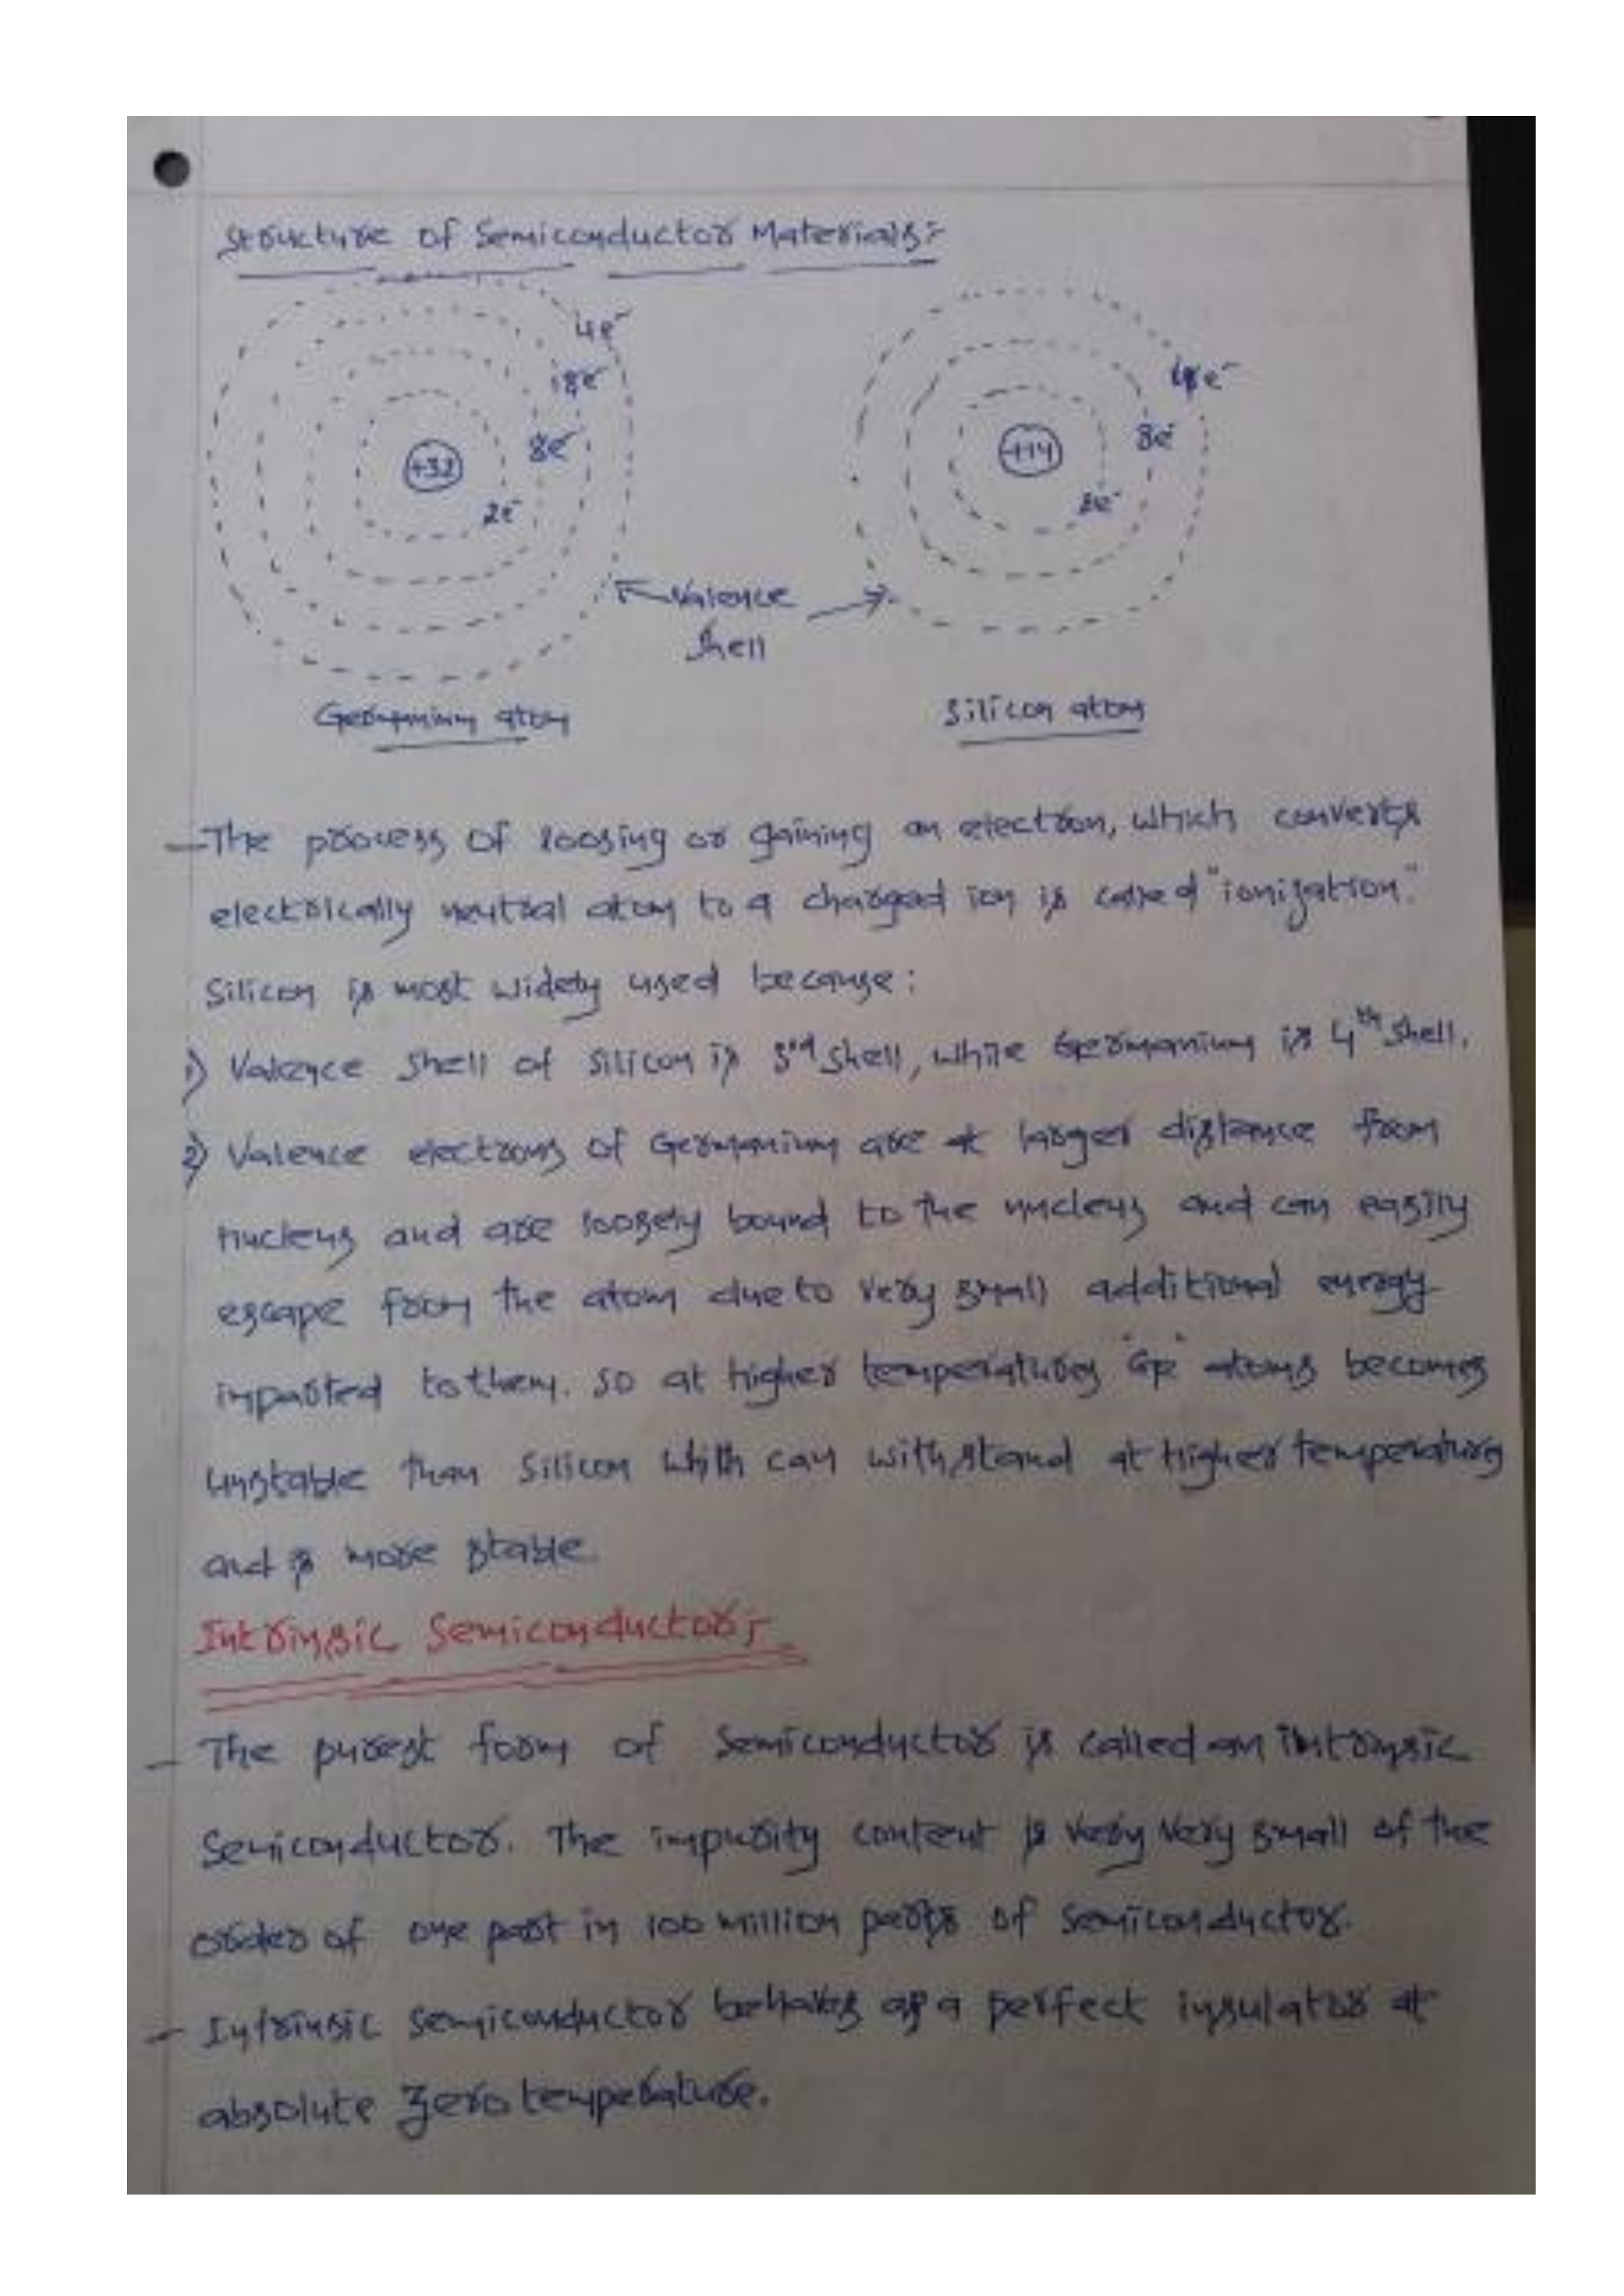 Structure of Semiconductor Materials:-
4e-
18e-
8e-
2e-
+32
4e-
8e-
2e-
+14
Valence
Shell
Germanium atom
Silicon atom
- The process of loosing or gaining an electron, which converts
electrically neutral atom to a charged ion is called "ionization."
Silicon is most widely used because:
1) Valence shell of silicon is 3rd shell, while Germanium is 4th shell.
2) Valence electrons of Germanium are at larger distance from
nucleus and are loosely bound to the nucleus and can easily
escape from the atom due to very small additional energy
imparted to them. so at higher temperatures "Ge" atoms becomes
unstable than silicon which can withstand at higher temperatures
and is more stable.
Intrinsic Semiconductor:-
- The purest form of semiconductor is called an intrinsic
semiconductor. The impurity content is very very small of the
order of one part in 100 million parts of semiconductor.
- Intrinsic semiconductor behaves as a perfect insulator at
absolute zero temperature.